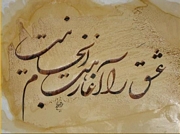 عشق را آغاز هست انجام نیست